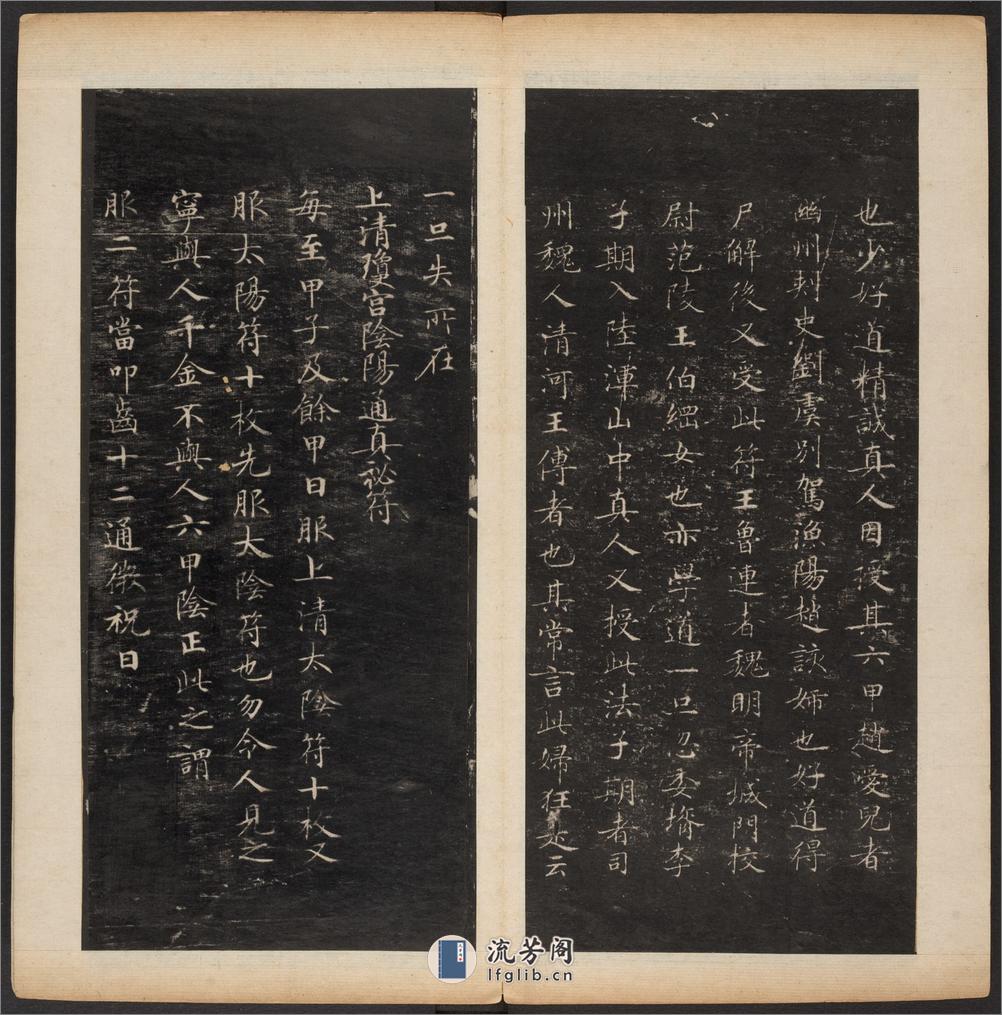 也少好道精誠真人因授其六甲趙愛兒者
幽州刺史劉虞別駕漁陽趙該姊也好道得
尸解後又受此符王魯連者魏明帝城門校
尉范陵王伯綱女也亦學道一旦忽委壻李
子期入陸渾山中真人又授此法子期者司
州魏人清河王傅者也其常言此婦狂走云
一旦失所在
上清瓊宮陰陽通真祕符
每至甲子及餘甲日服上清太陰符十枚又
服太陽符十枚先服太陰符也勿令人見之
寧與人千金不與人六甲陰正此之謂
服二符當叩齒十二通微祝曰
流芳阁
lfglib.cn